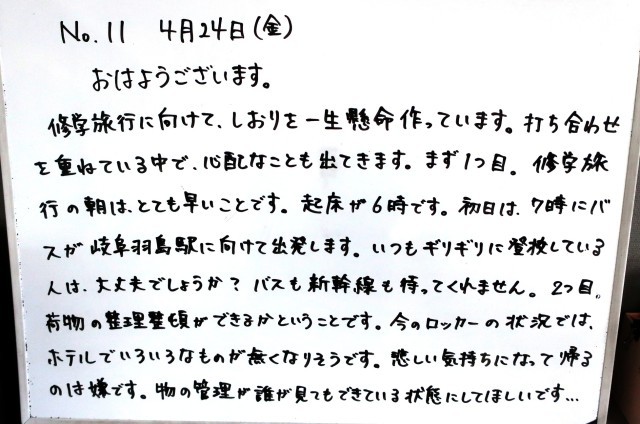 No.11 4月24日(金)
おはようございます。
修学旅行に向けて、しおりを一生懸命作っています。打ち合わせ
を重ねている中で、心配なことも出てきます。まず1つ目。修学旅
行の朝は、とても早いことです。起床が6時です。初日は、7時にバ
スが岐阜羽島駅に向けて出発します。いつもギリギリに登校している
人は、大丈夫でしょうか?バスも新幹線も待ってくれません。2つ目。
荷物の整理整頓ができるかということです。今のロッカーの状況では、
ホテルでいろいろなものが無くなりそうです。悲しい気持ちになって帰る
のは嫌です。物の管理が誰が見てもできている状態にしてほしいです…